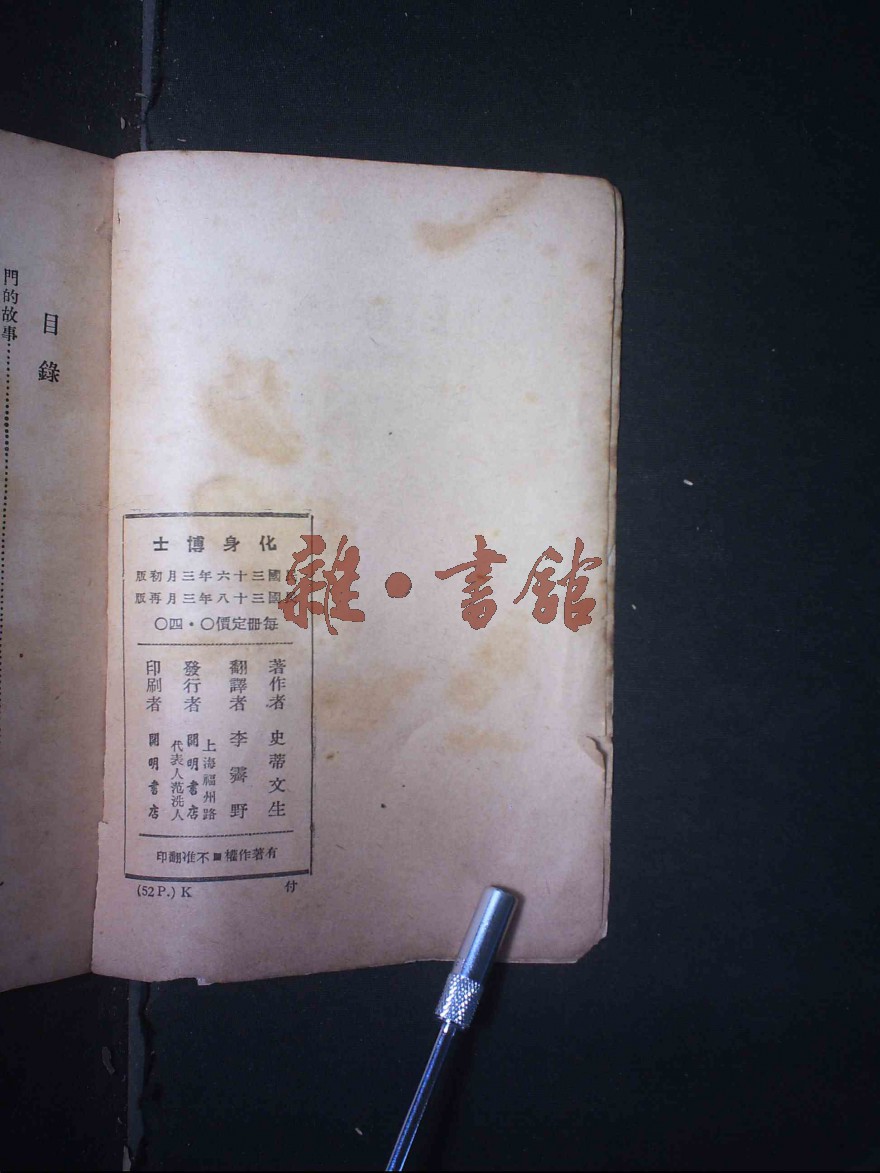 化身博士
民國三十六年三月初版
民國三十八年三月再版
每冊定價〇・四〇
著作者 史蒂文生
翻譯者 李霽野
發行者 上海福州路
開明書店
代表人范洗人
印刷者 開明書店
有著作權■不准翻印
(52 P.) K
付
目錄
門的故事
雜・書館